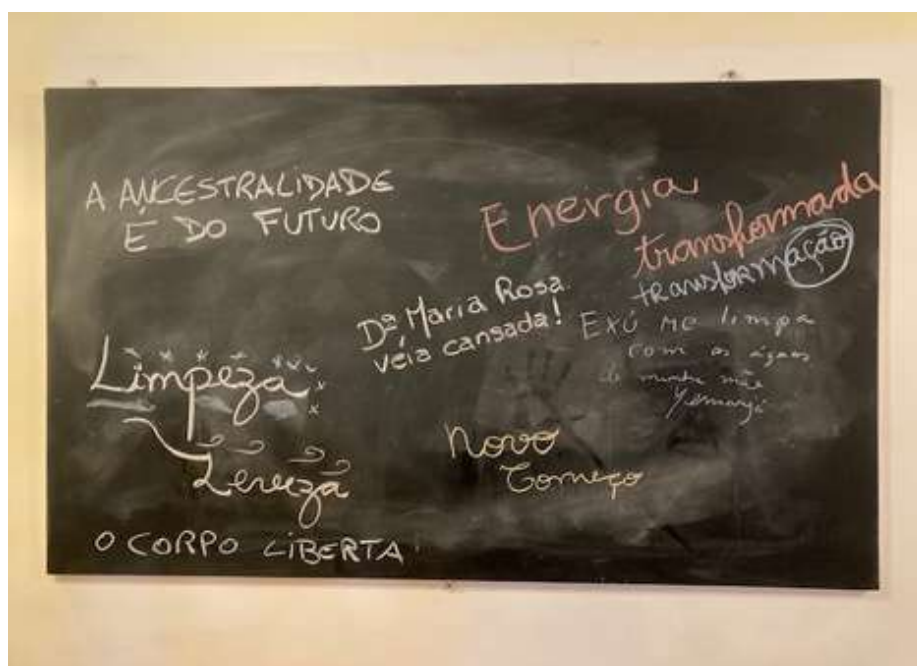 A ANCESTRALIDADE
É DO FUTURO
Energia
transformada
transformAÇÃO
Dª Maria Rosa
véia cansada!
EXÚ me limpa
com as águas
de minha mãe
Yemanjá
Limpeza
Leveza
Novo
Começo
O CORPO LIBERTA